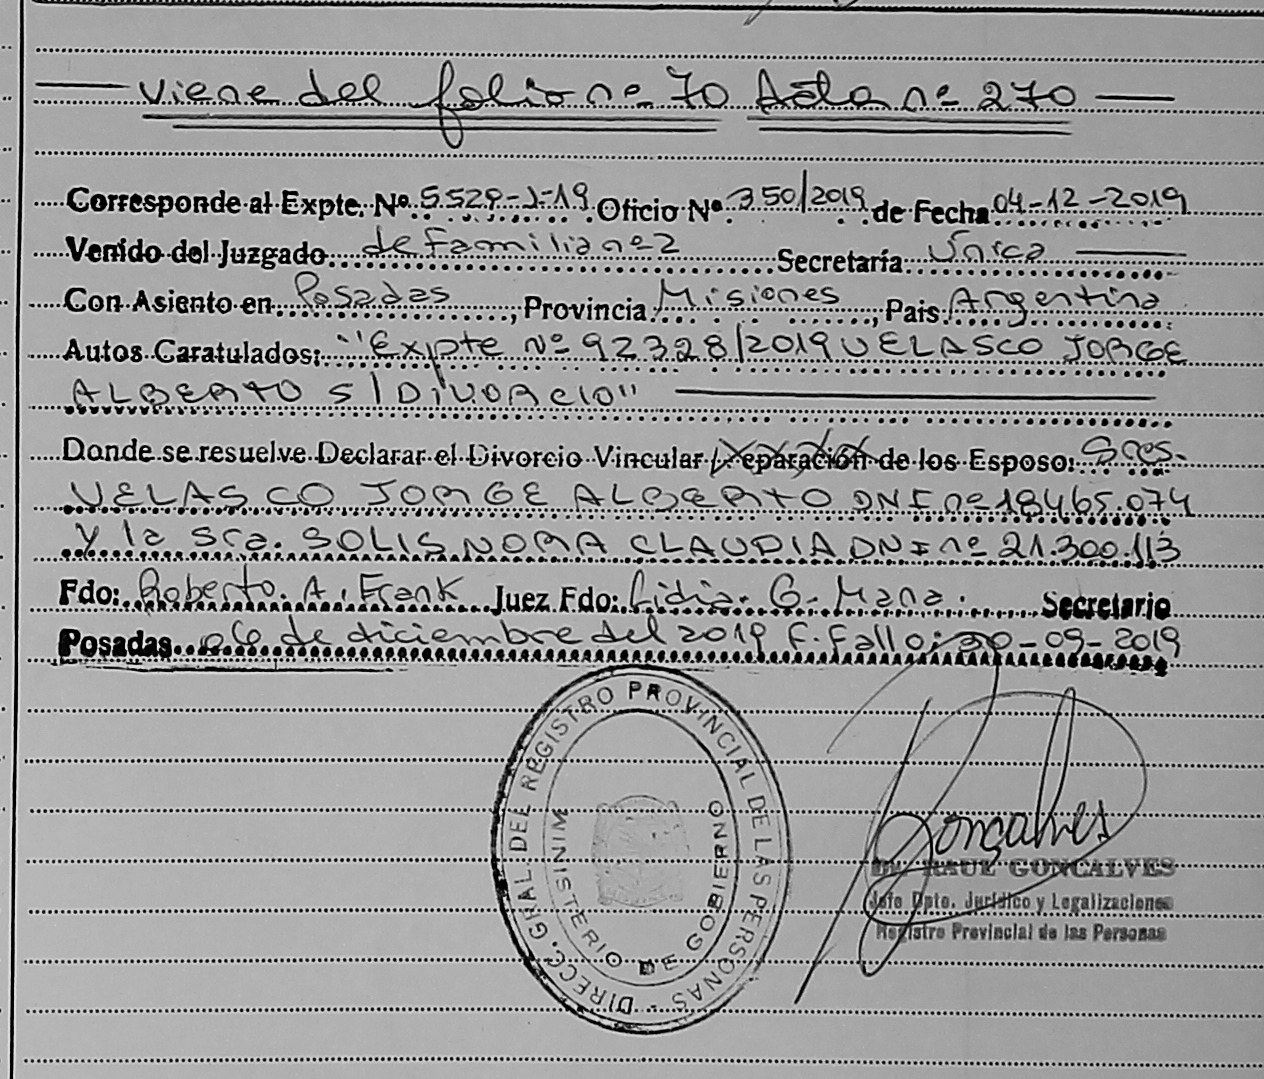 viene del folio nº 70 Acta nº 270
Corresponde al Expte. Nº 5529-J-19 Oficio Nº 350/2019 de Fecha 04-12-2019
Venido del Juzgado de Familia nº 2 Secretaría Única
Con Asiento en Posadas, Provincia Misiones, Pais Argentina
Autos Caratulados: "Expte Nº 92328/2019 VELASCO JORGE
ALBERTO S/DIVORCIO"
Donde se resuelve Declarar el Divorcio Vincular / Separación de los Esposo: Sres.
VELASCO JORGE ALBERTO DNI nº 18465.074
y la Sra. SOLIS NORA CLAUDIA DNI nº 21.300.113
Fdo: Roberto. A. Frank Juez Fdo: Lidia. G. Mana. Secretario
Posadas 06 de diciembre del 2019 F. Fallo: 30-09-2019
DIRECC. GRAL. DEL REGISTRO PROVINCIAL DE LAS PERSONAS
MINISTERIO DE GOBIERNO
Goncalves
Dr. RAUL GONCALVES
Jefe Dpto. Jurídico y Legalizaciones
Registro Provincial de las Personas